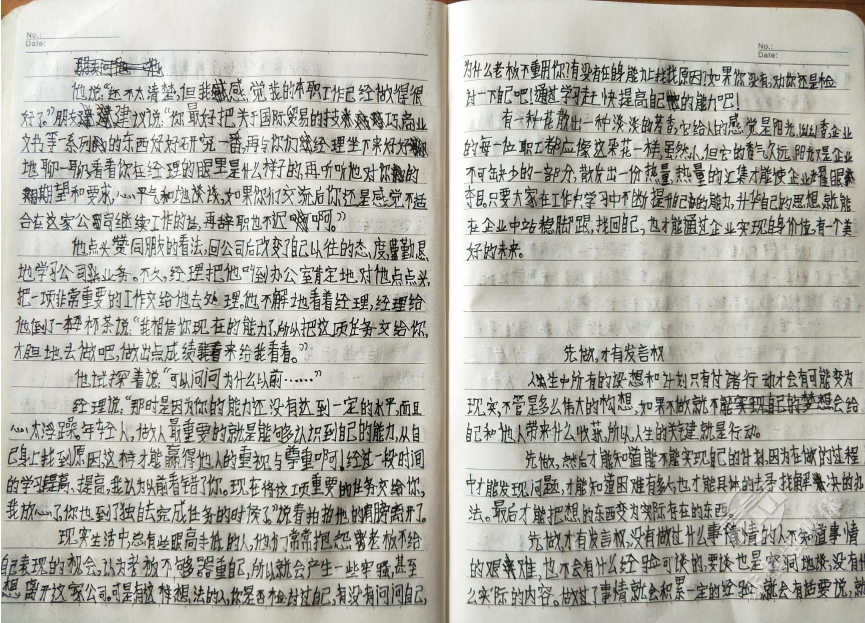 No.:
Date:
他说："还不太清楚,但我感觉我的本职工作已经做得很
好了。"朋友建议说:"你最好把关于国际贸易的技巧,商业
文书等一系列的东西好好研究一番,再与你们经理坐下来好好
地聊一聊,看看你在经理的眼里是什么样子的,再听听他对你的
期望和要求,心平气和地谈谈,如果你们交流后你还是感觉不适
合在这家公司继续工作的话,再辞职也不迟啊。"
他点头赞同朋友的看法,回公司后改变了自己以往的态度,勤恳
地学习公司业务。不久,经理把他叫到办公室肯定地对他点点头,
把一项非常重要的工作交给他去处理,他不解地看着经理,经理给
他倒了一杯茶说:"我相信你现在的能力了,所以把这项任务交给你,
大胆地去做吧,做出点成绩来给我看看。"
他试探着说:"可以问问为什么以前……"
经理说:"那时是因为你的能力还没有达到一定的水平,而且
心太浮躁。年轻人,做人最重要的就是能够认识到自己的能力,从自
己身上找到原因,这样才能赢得他人的重视与尊重啊!经过一段时间
的学习提高,我认为以前看错了你。现在将这项重要的任务交给你,
我放心了,你也到了独自去完成任务的时候了。"说着拍拍他的肩膀离开了。
现实生活中总有些眼高手低的人,他们常常把怨老板不给
自己表现的机会,认为老板不够器重自己,所以就会产生一些牢骚,甚至
想离开这家公司。可是有这种想法的人,你是否检讨过自己,有没有问问自己,
No.:
Date:
为什么老板不重用你?有没有在自身能力上找找原因?如果你没有,劝你还是检
讨一下自己吧!通过学习赶快提高自己的能力吧!
有一种花散出一种淡淡的芳香,它给人的感觉是阳光,企业
的每一位职工都应像这朵花一样,虽然人,但它的香气久远,阳光是企业
不可缺少的一部分,散发出一份热量,热量的汇集才能使企业耀眼
夺目,只要大家在工作和学习中不断提升自己的能力,升华自己的思想,就能
在企业中站稳脚跟,找回自己,也才能通过企业实现自身价值,有一个美
好的未来。
先做,才有发言权
人生中所有的设想和计划只有付诸行动才会有可能变为
现实,不管是多么伟大的构想,如果不做就不能实现自己的梦想会给
自己和他人带来什么收获,所以,人生的关键就是行动。
先做,然后才能知道能不能实现自己的计划,因为在做的过程
中才能发现问题,才能知道困难有多大,也才能具体的去寻找解决的办
法。最后才能把想的东西变为实际存在的东西。
先做,才有发言权,没有做过什么事情的人不知道事情
的艰难,也不会有什么经验可谈的,要谈也是空洞地谈,没有什
么实际的内容。做过了事情就会积累一定的经验,就会有话要说,就